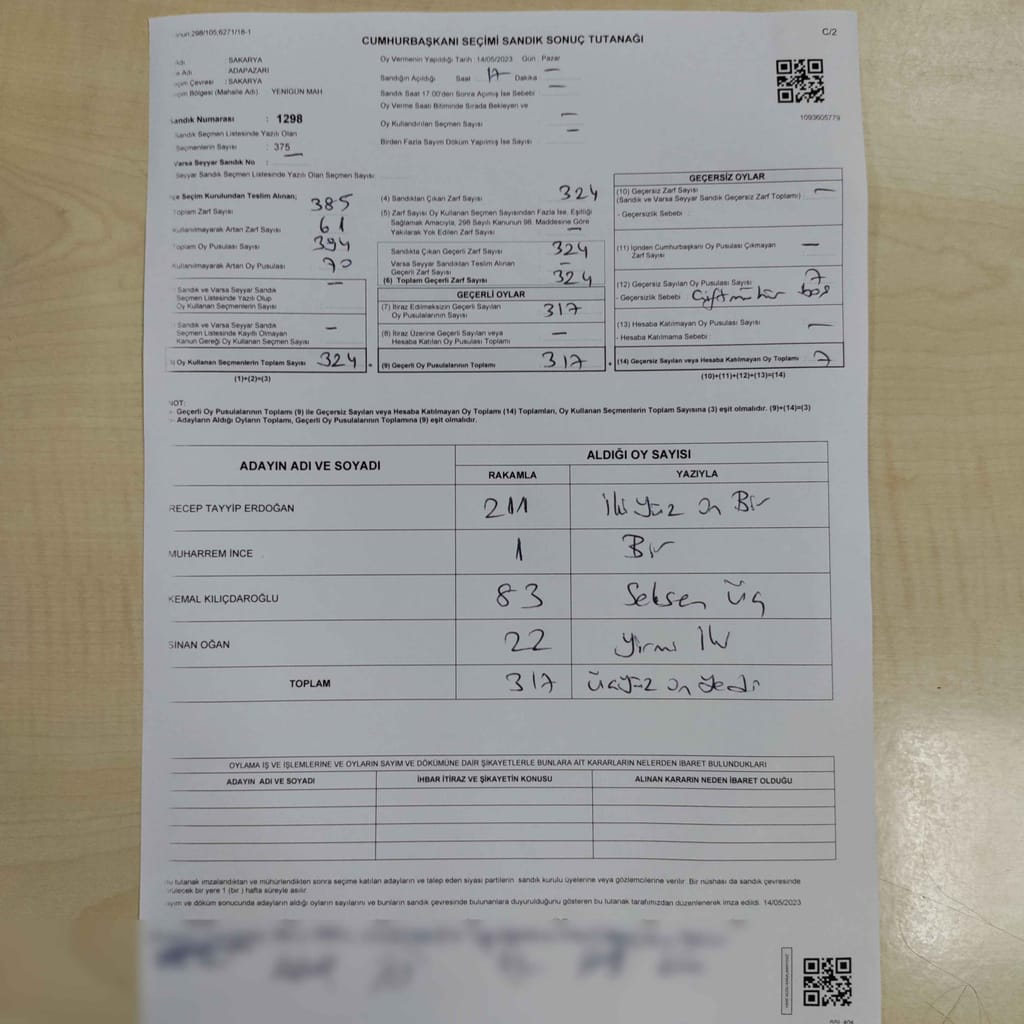 298/105,6271/18-1
C/2
CUMHURBAŞKANI SEÇİMİ SANDIK SONUÇ TUTANAĞI
: SAKARYA
: ADAPAZARI
Çevresi : SAKARYA
Bölgesi (Mahalle Adı) YENİGÜN MAH
Sandık Numarası : 1298
Sandık Seçmen Listesinde Yazılı Olan
Seçmenlerin Sayısı : 375
Varsa Seyyar Sandık No :
Seyyar Sandık Seçmen Listesinde Yazılı Olan Seçmen Sayısı
Oy Vermenin Yapıldığı Tarih : 14/05/2023 Gün : Pazar
Sandığın Açıldığı Saat 17 Dakika —
Sandık Saat 17.00'den Sonra Açılmış İse Sebebi : —
Oy Verme Saati Bitiminde Sırada Bekleyen ve
Oy Kullandırılan Seçmen Sayısı —
Birden Fazla Sayım Döküm Yapılmış İse Sayısı : —
1093605779
Seçim Kurulundan Teslim Alınan;
Toplam Zarf Sayısı 385
Kullanılmayarak Artan Zarf Sayısı 61
Toplam Oy Pusulası Sayısı 394
Kullanılmayarak Artan Oy Pusulası 70
Sandık ve Varsa Seyyar Sandık
Seçmen Listesinde Yazılı Olup
Oy Kullanan Seçmenlerin Sayısı —
Sandık ve Varsa Seyyar Sandık
Seçmen Listesinde Kayıtlı Olmayan
Kanun Gereği Oy Kullanan Seçmen Sayısı —
Oy Kullanan Seçmenlerin Toplam Sayısı 324
(1)+(2)=(3)
(4) Sandıktan Çıkan Zarf Sayısı 324
(5) Zarf Sayısı Oy Kullanan Seçmen Sayısından Fazla İse, Eşitliği
Sağlamak Amacıyla, 298 Sayılı Kanunun 98. Maddesine Göre
Yakılarak Yok Edilen Zarf Sayısı —
Sandıkta Çıkan Geçerli Zarf Sayısı 324
Varsa Seyyar Sandıktan Teslim Alınan
Geçerli Zarf Sayısı —
(6) Toplam Geçerli Zarf Sayısı 324
GEÇERLİ OYLAR
(7) İtiraz Edilmeksizin Geçerli Sayılan
Oy Pusulalarının Sayısı 317
(8) İtiraz Üzerine Geçerli Sayılan veya
Hesaba Katılan Oy Pusulası Toplamı —
(9) Geçerli Oy Pusulalarının Toplamı 317
GEÇERSİZ OYLAR
(10) Geçersiz Zarf Sayısı —
(Sandık ve Varsa Seyyar Sandık Geçersiz Zarf Toplamı)
- Geçersizlik Sebebi
(11) İçinden Cumhurbaşkanı Oy Pusulası Çıkmayan
Zarf Sayısı —
(12) Geçersiz Sayılan Oy Pusulası Sayısı 7
- Geçersizlik Sebebi Çift mühür boş
(13) Hesaba Katılmayan Oy Pusulası Sayısı —
- Hesaba Katılmama Sebebi
(14) Geçersiz Sayılan veya Hesaba Katılmayan Oy Toplamı 7
(10)+(11)+(12)+(13)=(14)
NOT:
- Geçerli Oy Pusulalarının Toplamı (9) ile Geçersiz Sayılan veya Hesaba Katılmayan Oy Toplamı (14) Toplamları, Oy Kullanan Seçmenlerin Toplam Sayısına (3) eşit olmalıdır. (9)+(14)=(3)
- Adayların Aldığı Oyların Toplamı, Geçerli Oy Pusulalarının Toplamına (9) eşit olmalıdır.
ADAYIN ADI VE SOYADI ALDIĞI OY SAYISI
RAKAMLA YAZIYLA
RECEP TAYYİP ERDOĞAN 211 İki Yüz on Bir
MUHARREM İNCE 1 Bir
KEMAL KILIÇDAROĞLU 83 Seksen Üç
SİNAN OĞAN 22 Yirmi İki
TOPLAM 317 Üçyüz on Yedi
OYLAMA İŞ VE İŞLEMLERİNE VE OYLARIN SAYIM VE DÖKÜMÜNE DAİR ŞİKAYETLERLE BUNLARA AİT KARARLARIN NELERDEN İBARET BULUNDUKLARI
ADAYIN ADI VE SOYADI İHBAR İTİRAZ VE ŞİKAYETİN KONUSU ALINAN KARARIN NEDEN İBARET OLDUĞU
tutanak imzalandıktan ve mühürlendikten sonra seçime katılan adayların ve talep eden siyasi partilerin sandık kurulu üyelerine veya gözlemcilerine verilir. Bir nüshası da sandık çevresinde
bir yere 1 (bir) hafta süreyle asılır.
ve döküm sonucunda adayların aldığı oyların sayılarını ve bunların sandık çevresinde bulunanlara duyurulduğunu gösteren bu tutanak tarafımızdan düzenlenerek imza edildi. 14/05/2023